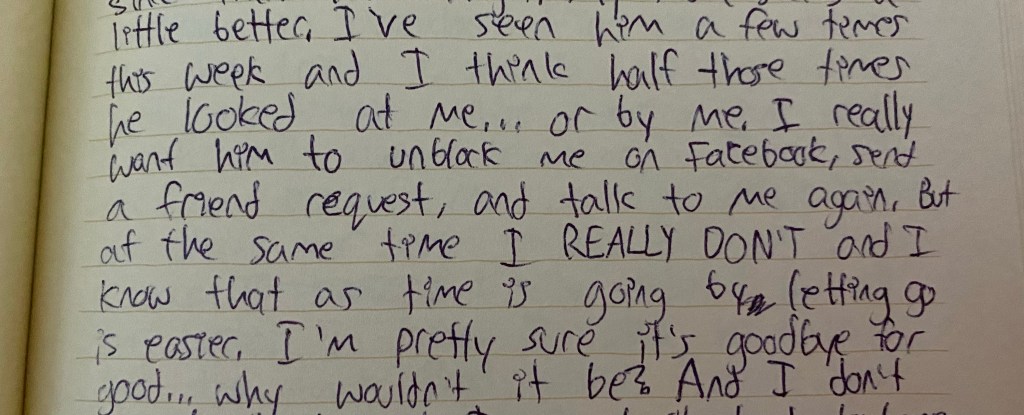 little better, I've seen him a few times
this week and I think half those times
he looked at me... or by me. I really
want him to unblock me on Facebook, send
a friend request, and talk to me again. But
at the same time I REALLY DON'T and I
know that as time is going by letting go
is easier. I'm pretty sure it's goodbye for
good... why wouldn't it be? And I don't